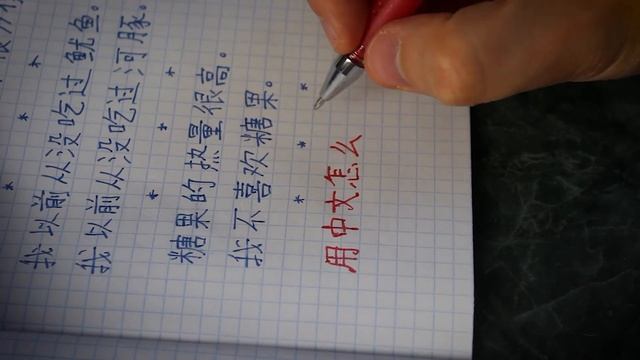 我以前从没吃过鱿鱼。
我以前从没吃过河豚。
糖果的热量很高。
我不喜欢糖果。
用中文怎么